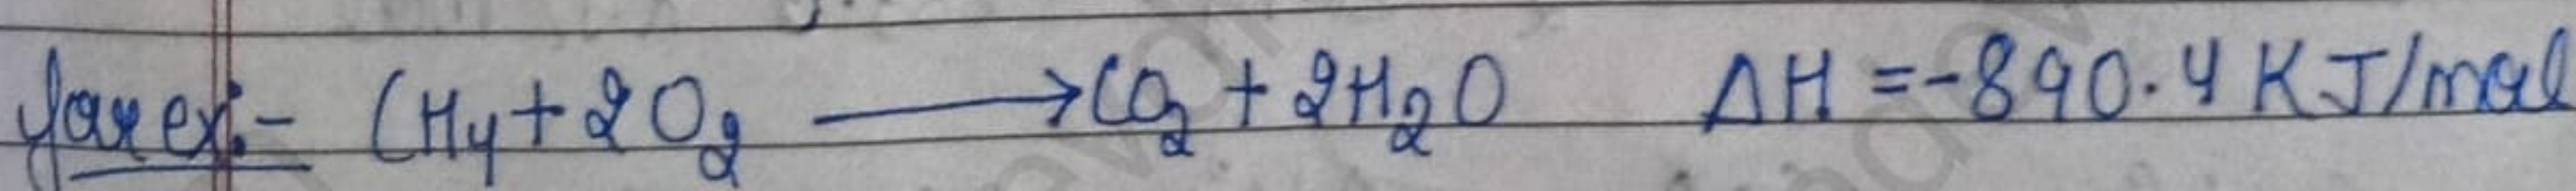 for ex:- CH₄ + 2O₂ ⟶ CO₂ + 2H₂O ΔH = -890.4 KJ/mol